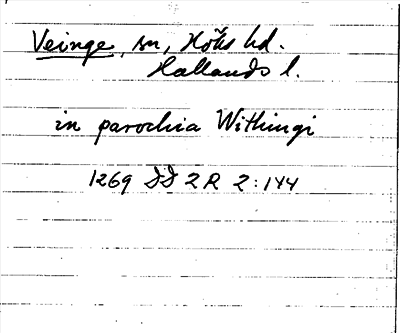 Veinge, sn, Höks hd.
Hallands l.
in parochia Withingi
1269 DD 2R 2:144